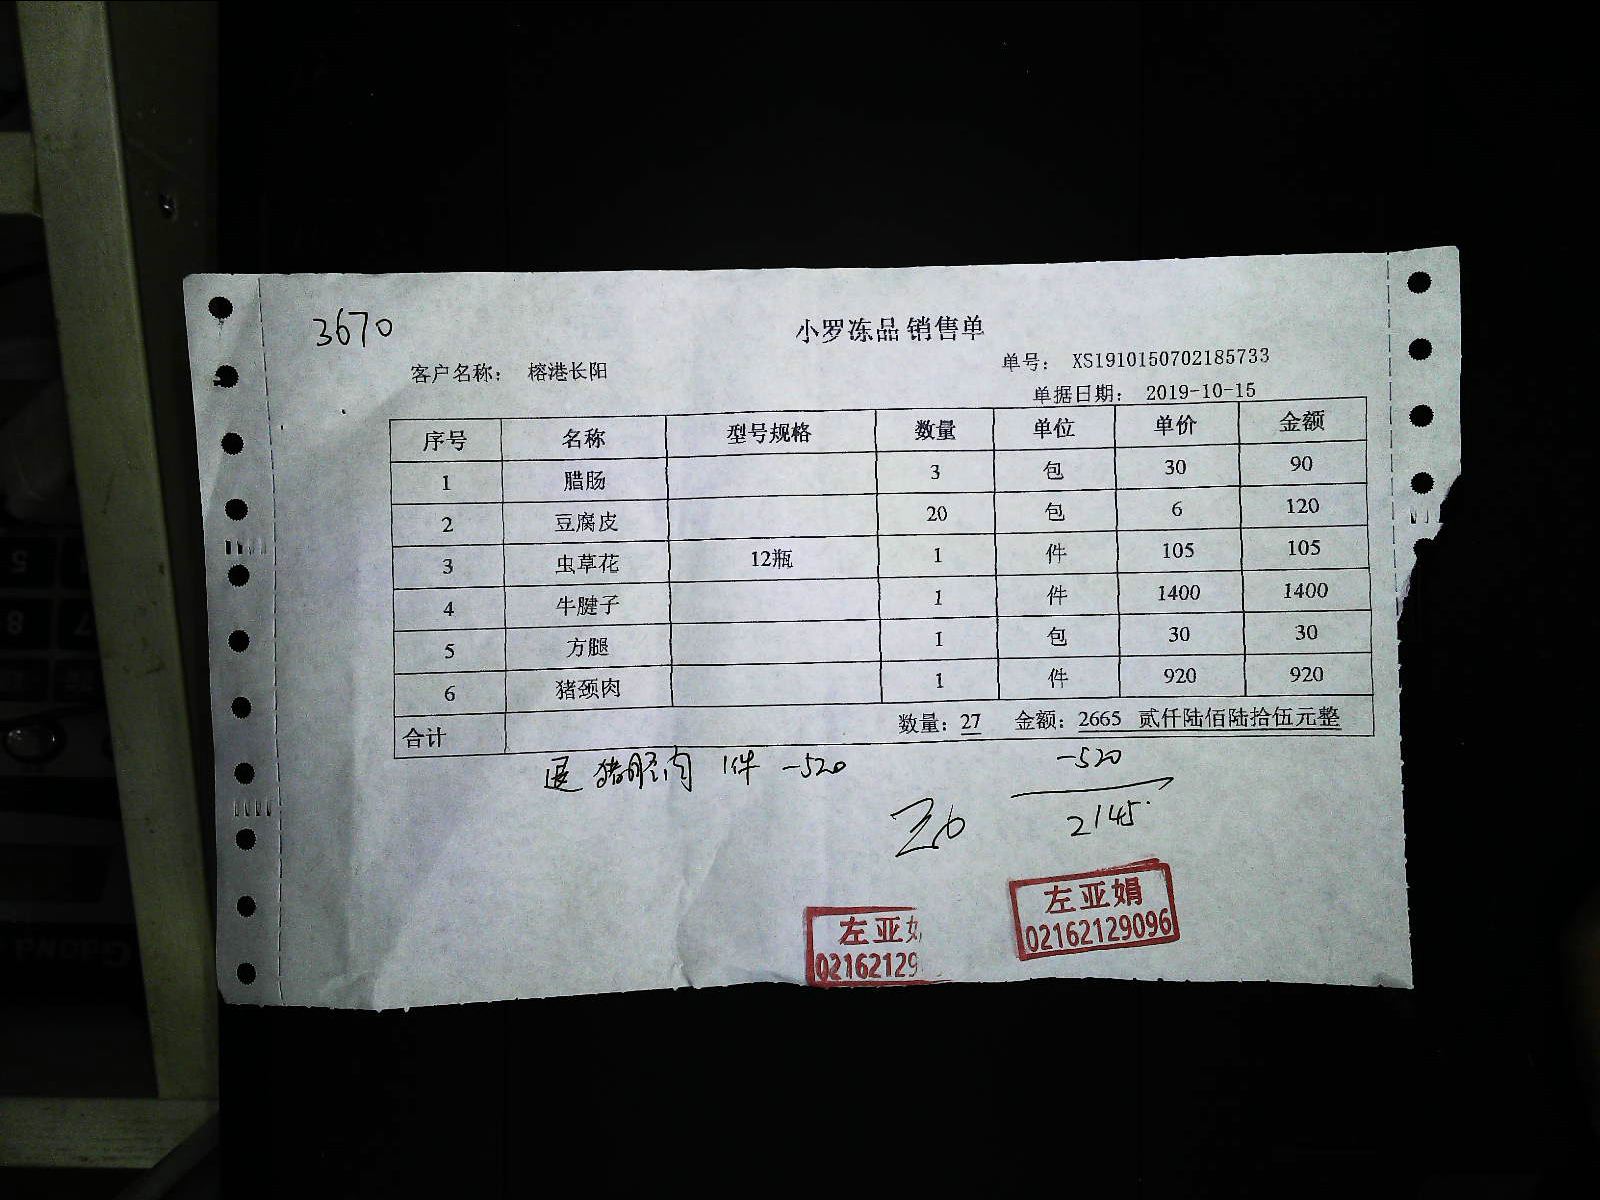 3670
小罗冻品 销售单
客户名称: 榕港长阳
单号: XS1910150702185733
单据日期: 2019-10-15
序号 名称 型号规格 数量 单位 单价 金额
1 腊肠 3 包 30 90
2 豆腐皮 20 包 6 120
3 虫草花 12瓶 1 件 105 105
4 牛腱子 1 件 1400 1400
5 方腿 1 包 30 30
6 猪颈肉 1 件 920 920
合计 数量: 27 金额: 2665 贰仟陆佰陆拾伍元整
退 猪 肉 1件 -520
-520
2145
左亚娟
02162129096
左亚
02162129